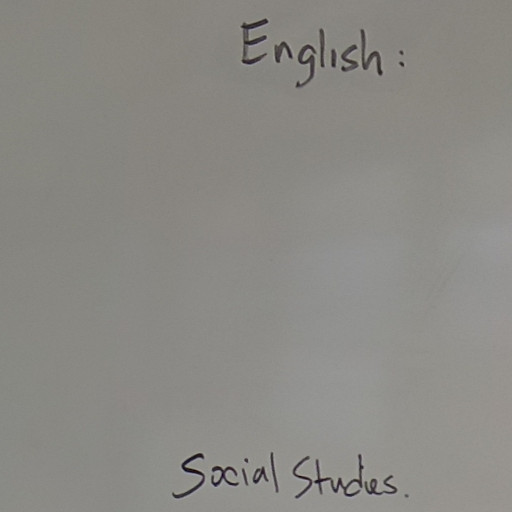 English:
Social Studies.